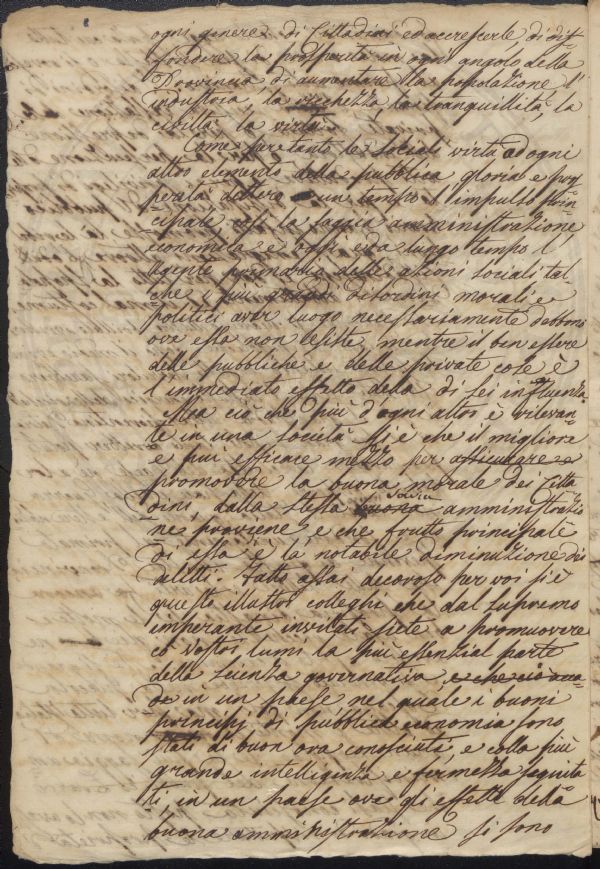 ogni genere di Cittadini ed accrescerle, di dif-
fondere la prosperità in ogni angolo della
Provincia di aumentare la popolazione l'
industria, la ricchezza, la tranquillità, la
civiltà la virtù.
Come pertanto le sociali virtù ed ogni
altro elemento della pubblica gloria e pros
perità dettero un tempo l'impulso prin-
cipale così la saggia amministrazione
economica è oggi e da lungo tempo l'
agente primario delle azioni sociali tal-
che i più grandi disordini morali e
politici aver luogo necessariamente debbono
ove essa non esiste, mentre il ben essere
delle pubbliche e delle private cose è
l'immediato effetto della di Lei influenza
Ma ciò che più d'ogni altro è rilevan-
te in una società si è che il migliore
e più efficace mezzo per assicurare e
promovere la buona morale dei Citta
dini dalla stessa buona savia amministrazio
ne proviene e che frutto principale
di essa è la notabile diminuzione dei
delitti. Fatto assai decoroso per voi si è
questo illustri colleghi che dal supremo
imperante invitati siete a promuovere
co' vostri lumi la più essenzial parte
della scienza governativa, e che ciò acca-
de in un paese nel quale i buoni
principj di pubblica economia sono
stati di buon ora conosciuti e colla più
grande intelligenza e fermezza seguita
ti, in un paese ove gli effetti della
buona amministrazione si sono